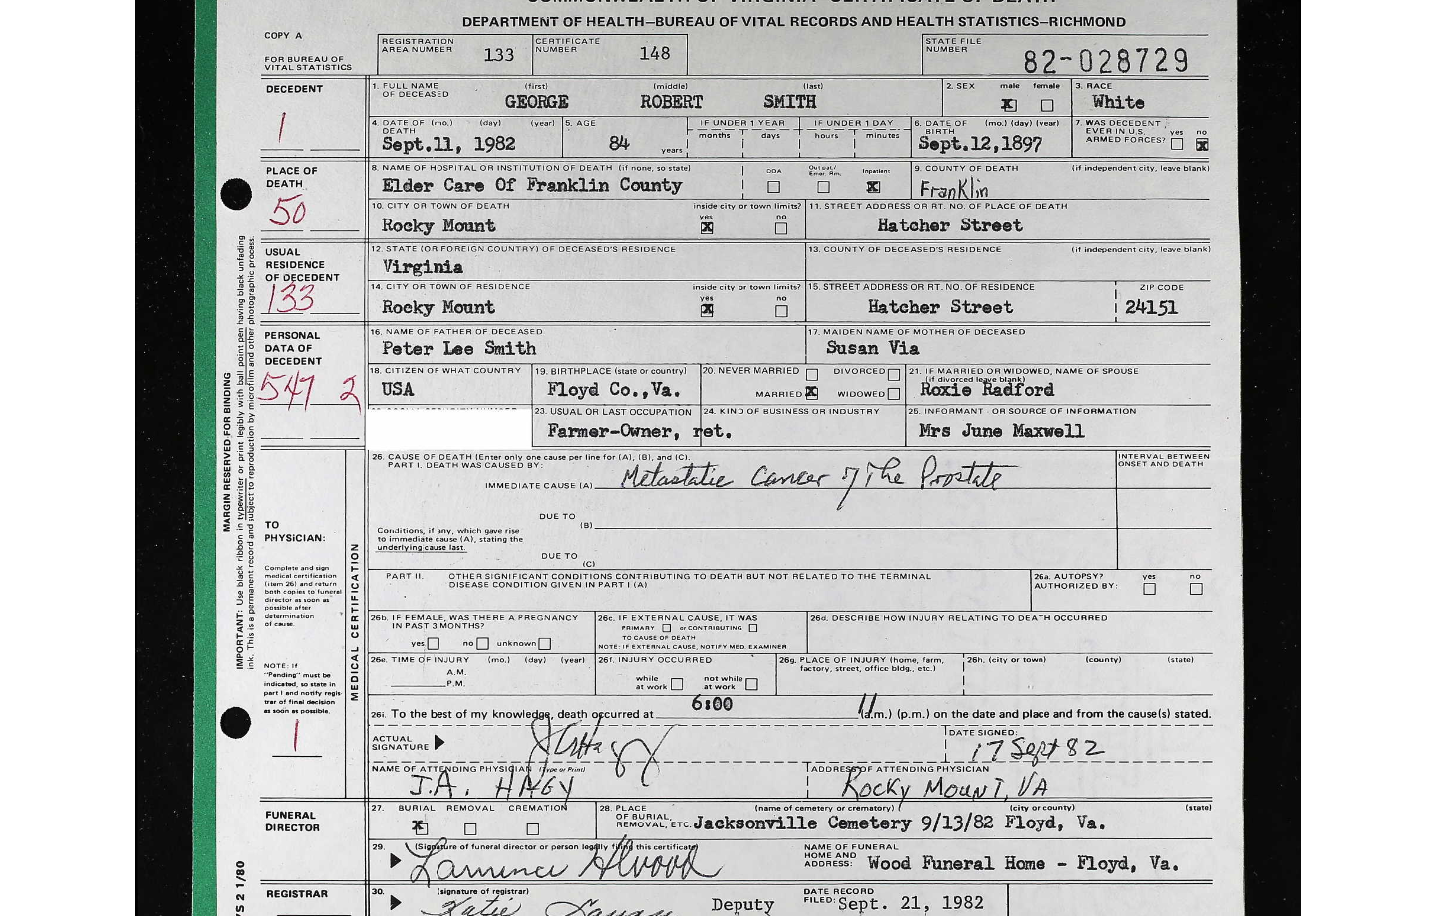 DEPARTMENT OF HEALTH—BUREAU OF VITAL RECORDS AND HEALTH STATISTICS—RICHMOND
COPY A
FOR BUREAU OF VITAL STATISTICS
REGISTRATION AREA NUMBER 133 CERTIFICATE NUMBER 148 STATE FILE NUMBER 82-028729
DECEDENT
1
1. FULL NAME OF DECEASED (first) (middle) (last) 2. SEX male female 3. RACE
GEORGE ROBERT SMITH X White
4. DATE OF DEATH (mo.) (day) (year) 5. AGE IF UNDER 1 YEAR months days IF UNDER 1 DAY hours minutes 6. DATE OF BIRTH (mo.) (day) (year) 7. WAS DECEDENT EVER IN U.S. ARMED FORCES? yes no
Sept.11, 1982 84 years Sept.12,1897 X
PLACE OF DEATH
50
8. NAME OF HOSPITAL OR INSTITUTION OF DEATH (if none, so state) DOA Out pat/ Emer. Rm. Inpatient 9. COUNTY OF DEATH (if independent city, leave blank)
Elder Care Of Franklin County X Franklin
10. CITY OR TOWN OF DEATH inside city or town limits? yes no 11. STREET ADDRESS OR RT. NO. OF PLACE OF DEATH
Rocky Mount X Hatcher Street
USUAL RESIDENCE OF DECEDENT
133
12. STATE (OR FOREIGN COUNTRY) OF DECEASED'S RESIDENCE 13. COUNTY OF DECEASED'S RESIDENCE (if independent city, leave blank)
Virginia
14. CITY OR TOWN OF RESIDENCE inside city or town limits? yes no 15. STREET ADDRESS OR RT. NO. OF RESIDENCE ZIP CODE
Rocky Mount X Hatcher Street 24151
PERSONAL DATA OF DECEDENT
547 2
16. NAME OF FATHER OF DECEASED 17. MAIDEN NAME OF MOTHER OF DECEASED
Peter Lee Smith Susan Via
18. CITIZEN OF WHAT COUNTRY 19. BIRTHPLACE (state or country) 20. NEVER MARRIED DIVORCED MARRIED X WIDOWED 21. IF MARRIED OR WIDOWED, NAME OF SPOUSE (if divorced leave blank)
USA Floyd Co.,Va. Roxie Radford
23. USUAL OR LAST OCCUPATION 24. KIND OF BUSINESS OR INDUSTRY 25. INFORMANT - OR SOURCE OF INFORMATION
Farmer-Owner, ret. Mrs June Maxwell
MARGIN RESERVED FOR BINDING
IMPORTANT: Use black ribbon in typewriter or print legibly with ball point pen having black unfading
ink. This is a permanent record and subject to reproduction by microfilm and other photographic process.
TO PHYSICIAN:
Complete and sign
medical certification
(item 26) and return
both copies to funeral
director as soon as
possible after
determination
of cause.
NOTE: If
"Pending" must be
indicated, so state in
part I and notify regis-
trar of final decision
as soon as possible.
1
MEDICAL CERTIFICATION
26. CAUSE OF DEATH (Enter only one cause per line for (A), (B), and (C). INTERVAL BETWEEN ONSET AND DEATH
PART I. DEATH WAS CAUSED BY:
IMMEDIATE CAUSE (A) Metastatic Cancer of The Prostate
DUE TO (B)
Conditions, if any, which gave rise
to immediate cause (A), stating the
underlying cause last.
DUE TO (C)
PART II. OTHER SIGNIFICANT CONDITIONS CONTRIBUTING TO DEATH BUT NOT RELATED TO THE TERMINAL DISEASE CONDITION GIVEN IN PART I (A) 26a. AUTOPSY? AUTHORIZED BY: yes no
26b. IF FEMALE, WAS THERE A PREGNANCY IN PAST 3 MONTHS? yes no unknown
26c. IF EXTERNAL CAUSE, IT WAS PRIMARY or CONTRIBUTING TO CAUSE OF DEATH
NOTE: IF EXTERNAL CAUSE, NOTIFY MED. EXAMINER
26d. DESCRIBE HOW INJURY RELATING TO DEATH OCCURRED
26e. TIME OF INJURY (mo.) (day) (year) A.M. P.M.
26f. INJURY OCCURRED while at work not while at work
26g. PLACE OF INJURY (home, farm, factory, street, office bldg., etc.)
26h. (city or town) (county) (state)
26i. To the best of my knowledge, death occurred at 6:00 (a.m.) (p.m.) on the date and place and from the cause(s) stated.
ACTUAL SIGNATURE DATE SIGNED: 17 Sept 82
NAME OF ATTENDING PHYSICIAN (Type or Print) ADDRESS OF ATTENDING PHYSICIAN
J.A. HAGY ROCKY MOUNT, VA
FUNERAL DIRECTOR
27. BURIAL REMOVAL CREMATION 28. PLACE OF BURIAL, REMOVAL, ETC. (name of cemetery or crematory) (city or county) (state)
X Jacksonville Cemetery 9/13/82 Floyd, Va.
29. (Signature of funeral director or person legally filing this certificate) NAME OF FUNERAL HOME AND ADDRESS: Wood Funeral Home - Floyd, Va.
REGISTRAR
30. (signature of registrar) DATE RECORD FILED: Sept. 21, 1982
Katie Deputy
VS 2 1/80